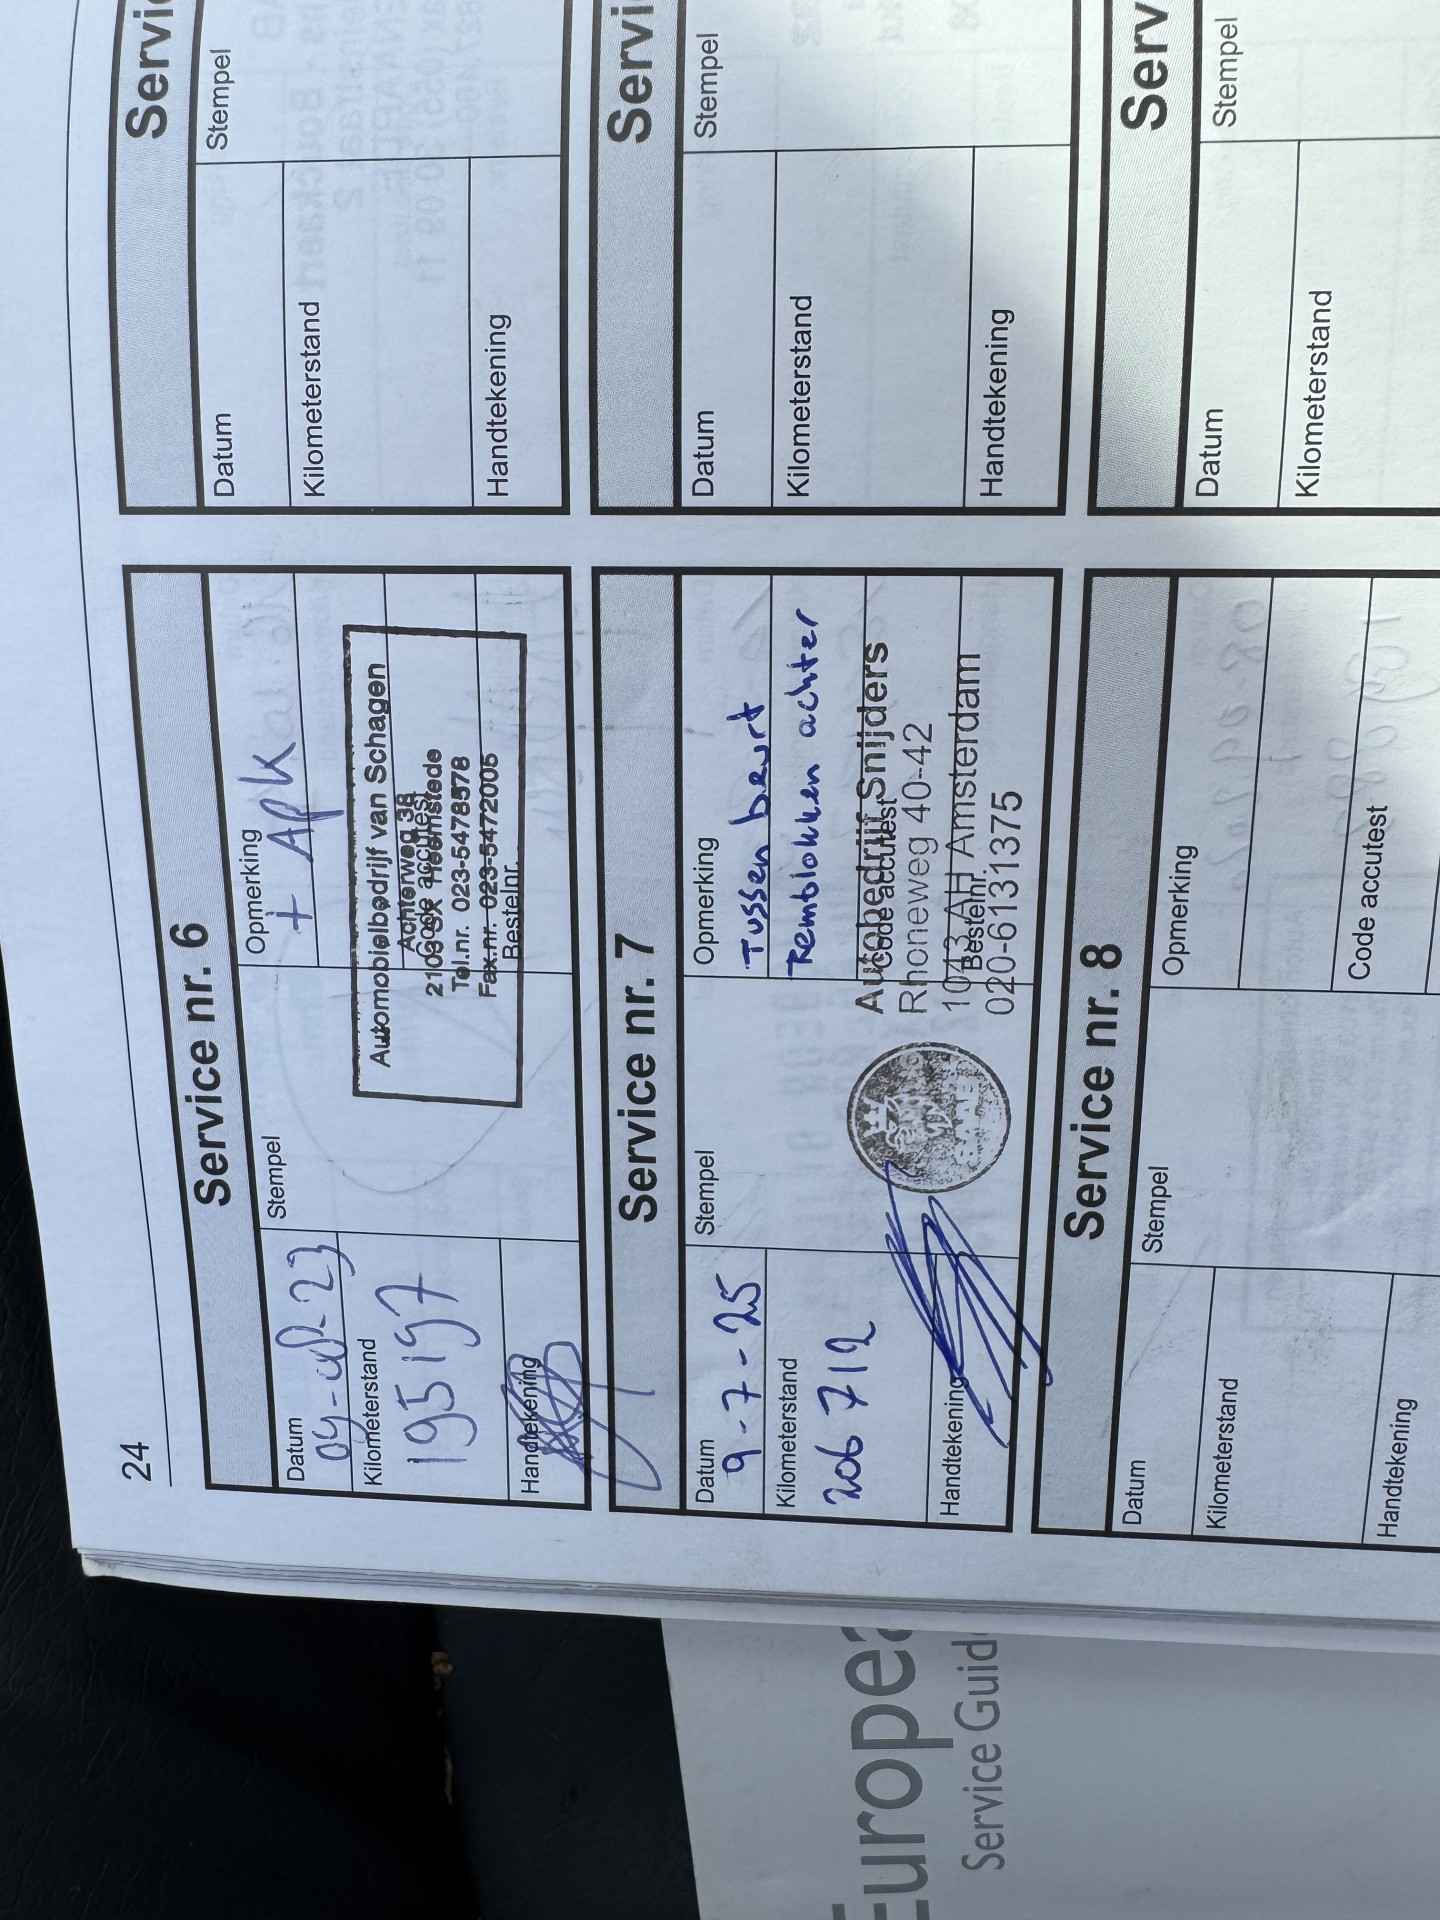 24
Service nr. 6
Datum
Stempel
Opmerking
+ APK
Kilometerstand
195197
Handtekening
Automobielbedrijf van Schagen
Achterweg 38
Code accutest
2103 SX Heemstede
Tel.nr. 023-5478578
Fax.nr. 023-5472005
Bestelnr.
Service nr. 7
Datum
9-7-25
Stempel
Opmerking
Tussen beurt
Remblokken achter
Kilometerstand
206 712
Handtekening
Autobedrijf Snijders
Code accutest
Rhoneweg 40-42
1043 AH Amsterdam
Bestelnr.
020-6131375
Service nr. 8
Datum
Stempel
Opmerking
Kilometerstand
Code accutest
Handtekening
Servi
Datum
Stempel
Kilometerstand
Handtekening
Servi
Datum
Stempel
Kilometerstand
Handtekening
Serv
Datum
Stempel
Kilometerstand
Europea
Service Guid